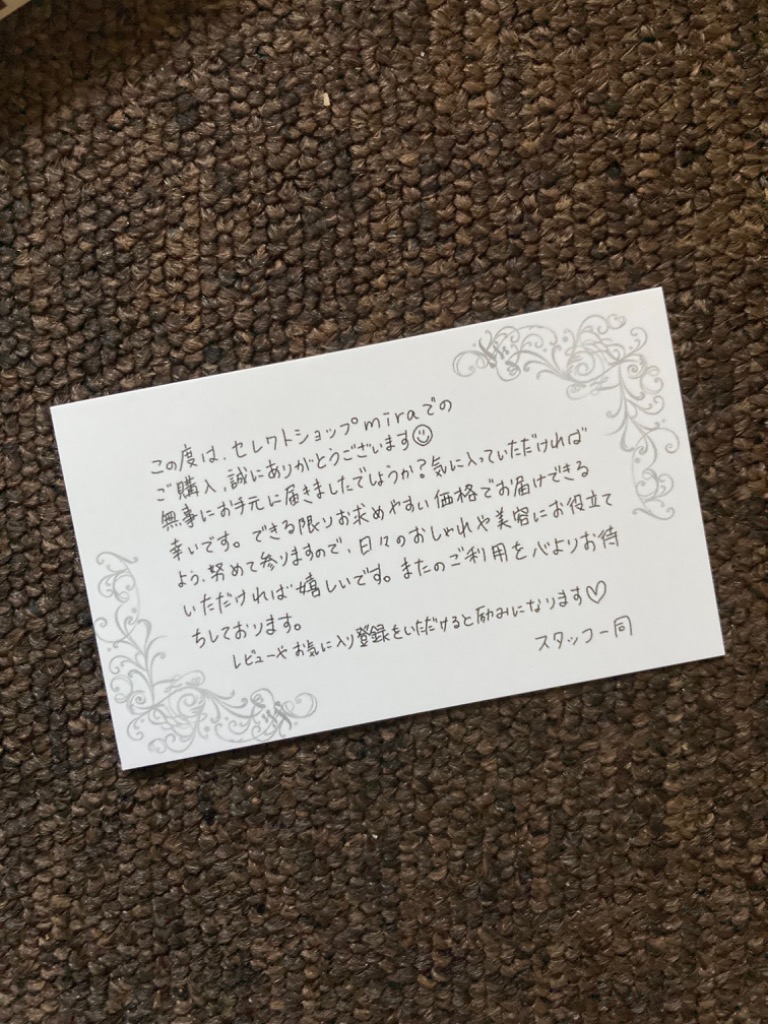 この度は、セレクトショップmiraでの
ご購入、誠にありがとうございます☺
無事にお手元に届きましたでしょうか?気に入っていただければ
幸いです。できる限りお求めやすい価格でお届けできる
よう、努めて参りますので、日々のおしゃれや美容にお役立て
いただければ嬉しいです。またのご利用を心よりお待
ちしております。
レビューやお気に入り登録をいただけると励みになります♡
スタッフ一同